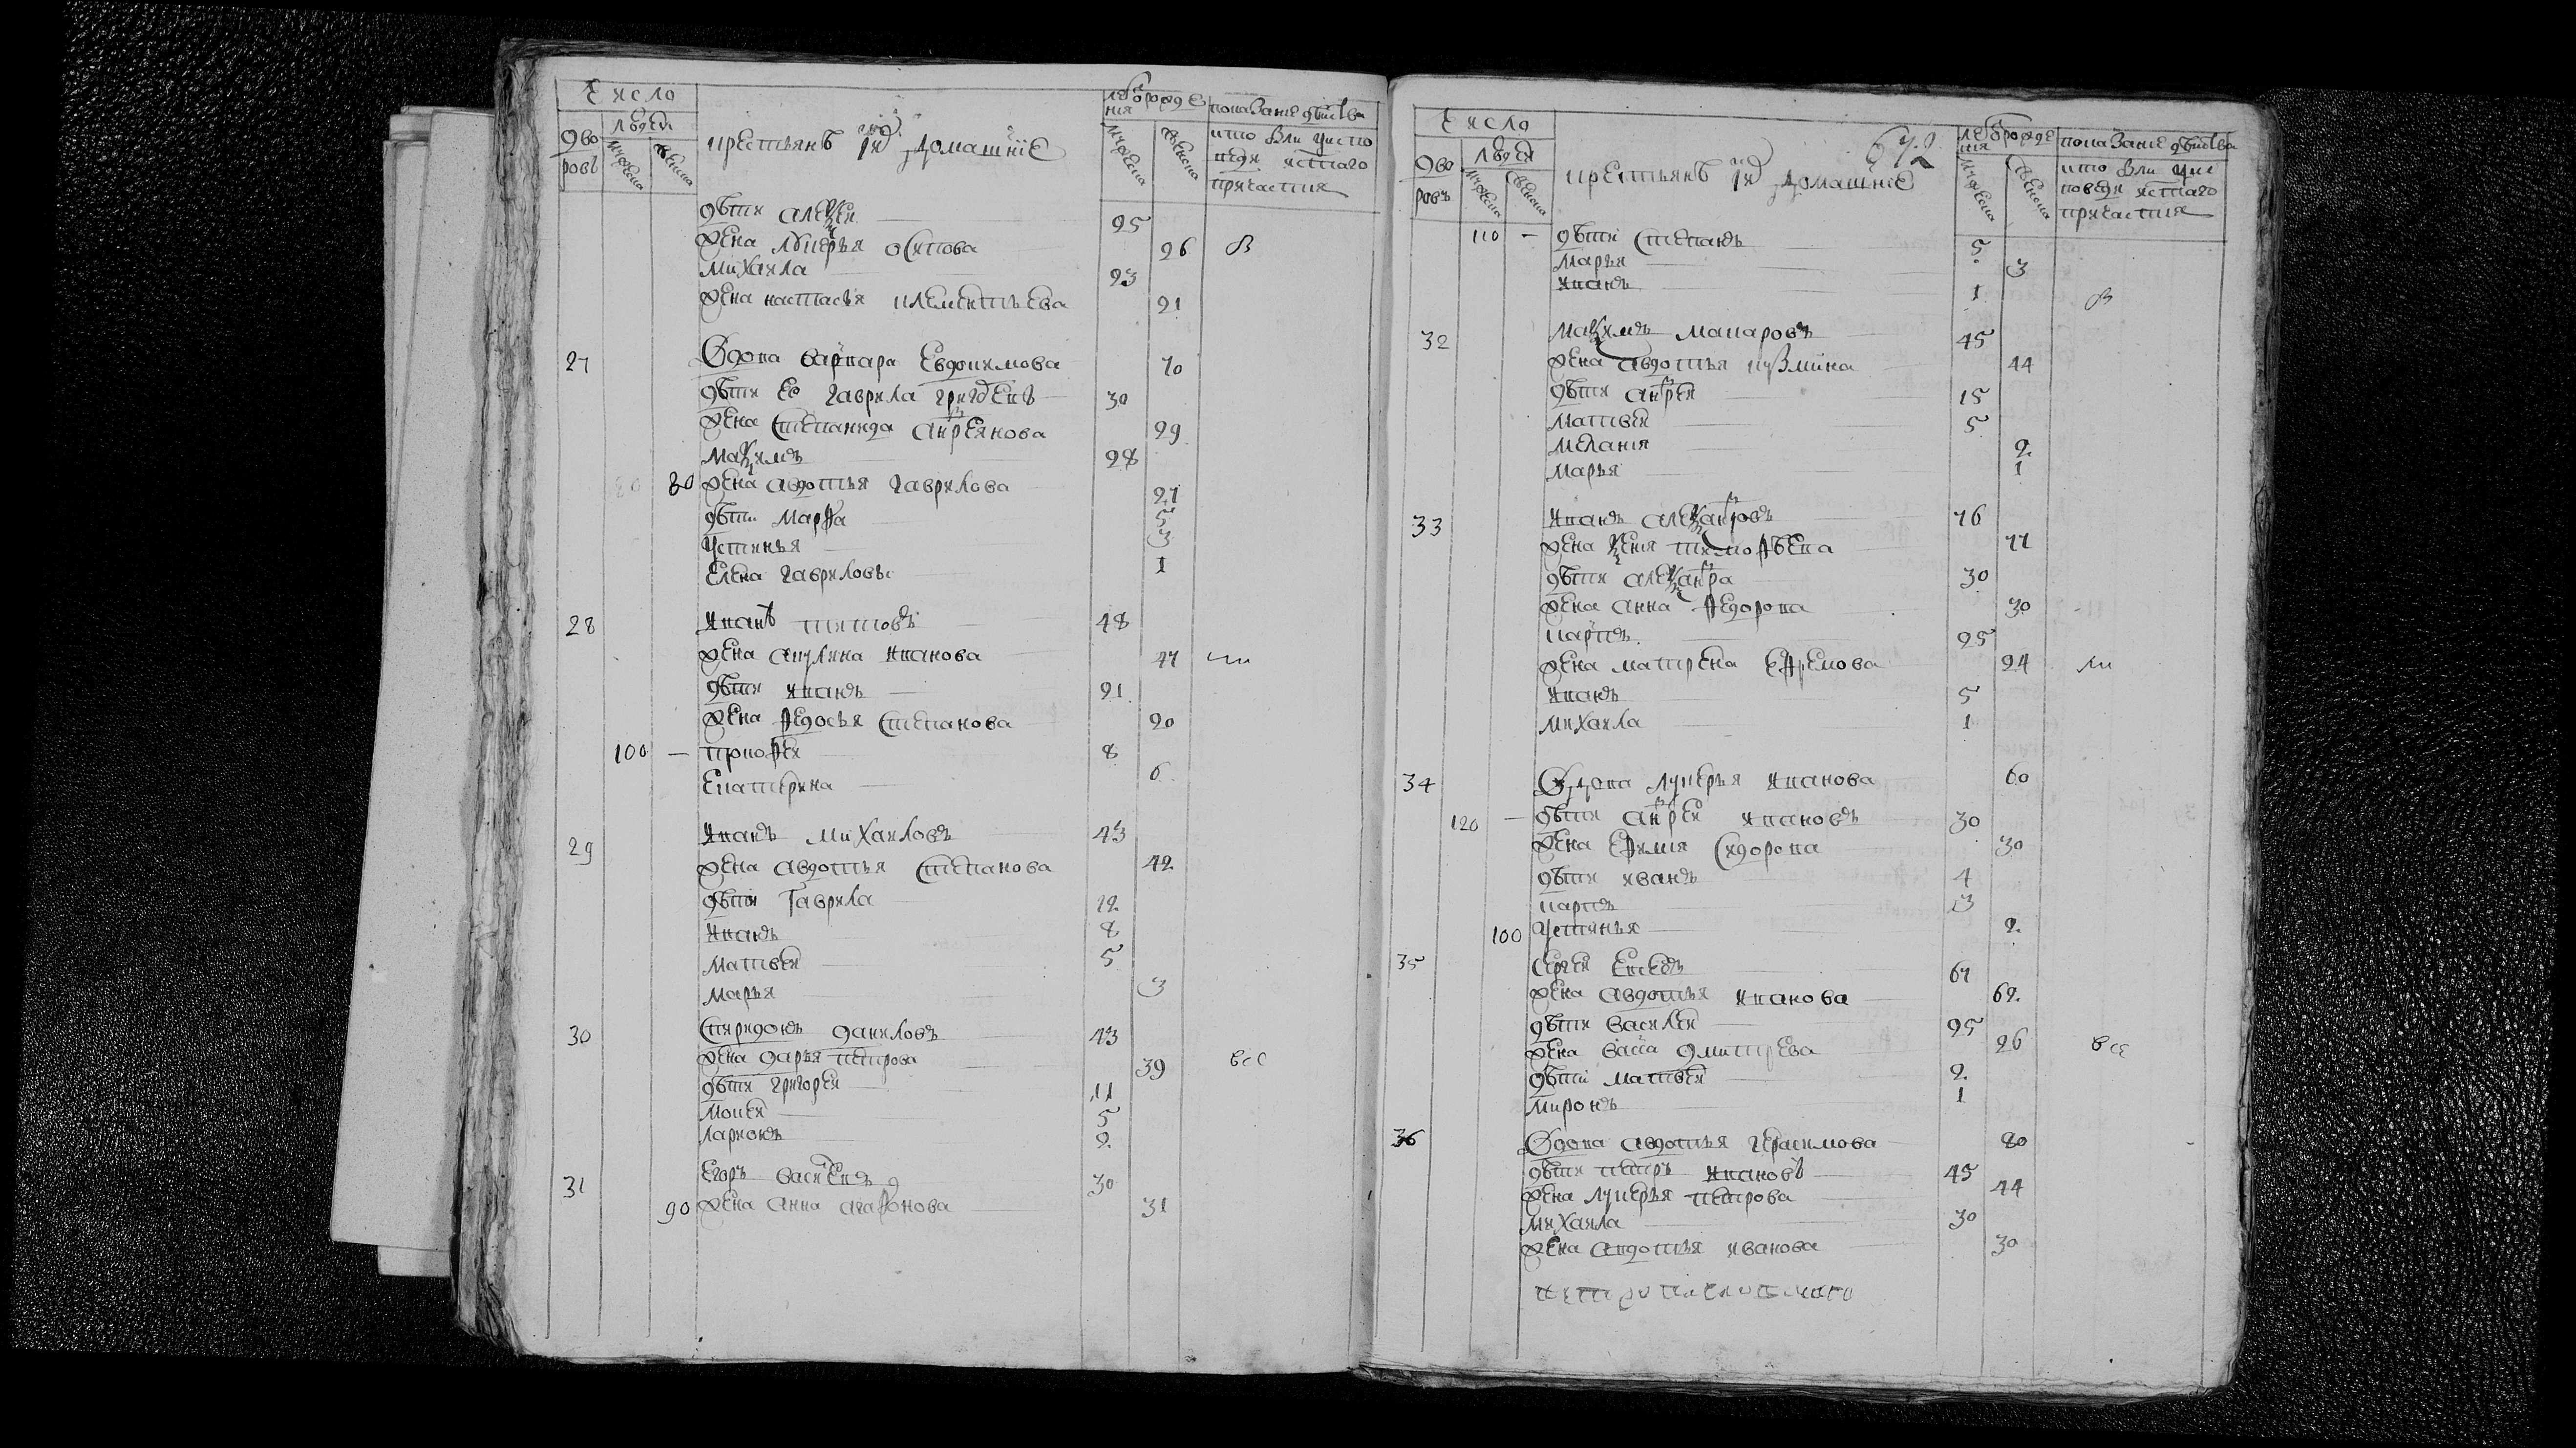 Число
Дво
ровъ
людеи
мужеска
женска
крестьянъ и ихъ домашние
лета от рожде
ния
мужеска
женска
показание действа
кто были у испо
веди и с[вя]таго
причастия
дети Алексеи 25
жена Лукерья Осипова 26
Михаила 23
жена Настасья Клементьева 21
27 Вдова Варвара Евдокимова 70
дети ее Гаврила Григорьевъ 30
жена Степанида Андреянова 29
Максимъ 28
80 жена Авдотья Гаврилова 27
дети Марфа 5
Устинья 3
Елена Гавриловы 1
28 Иванъ Титовъ 48
жена Акулина Иванова 47
дети Иванъ 21
жена Федосья Степанова 20
100 — Трофеи 8
Екатерина 6
29 Иванъ Михаиловъ 43
жена Авдотья Степанова 42
дети Гаврила 12
Иванъ 8
Матвеи 5
Марья 3
30 Спиридонъ Даниловъ 43
жена Дарья Петрова 39 все
дети Григореи 11
Мокеи 5
Ларионъ 2
31 Егоръ Васильевъ 30
90 жена Анна Агафонова 31
672
Число
Дво
ровъ
людеи
мужеска
женска
крестьянъ и ихъ домашние
лета от рожде
ния
мужеска
женска
показание действа
кто были у ис
поведи и с[вя]таго
причастия
110 — дети Степанъ 5
Марья 3
Иванъ 1
32 Максимъ Макаровъ 45
жена Авдотья Кузмина 44
дети Андреи 15
Матвеи 5
Мелания 2
Марья 1
33 Иванъ Александровъ 76
жена Ксения Тимофеева 77
дети Александра 30
жена Анна Федорова 30
Карпъ 25
жена Матрена Ефремова 24
Иванъ 5
Михаила 1
34 Вдова Лукерья Иванова 60
120 — дети Андреи Ивановъ 30
жена Ефимия Сидорова 30
дети Иванъ 4
Карпъ 3
100 Устинья 2
35 Сергеи Евсеевъ 67
жена Авдотья Иванова 62
дети Василеи 25
жена Васса Дмитрева 26 все
дети Матвеи 2
Миронъ 1
36 Вдова Авдотья Герасимова 80
дети Петръ Ивановъ 45
жена Лукерья Петрова 44
Михаила 30
жена Авдотья Иванова 30